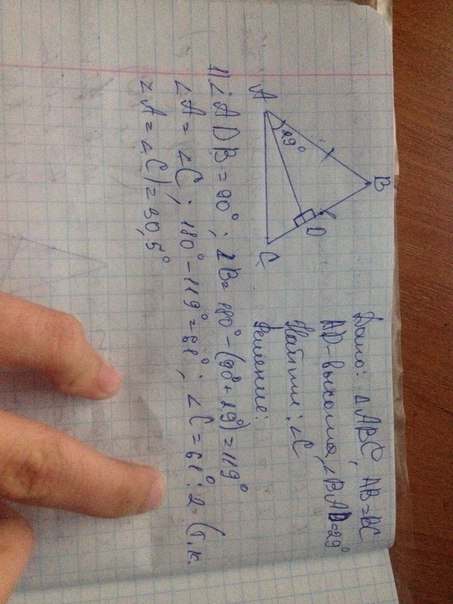 Дано: △ABC, AB=BC
AD-высота, ∠BAD=29°
Найти: ∠C
Решение:
A
29°
B
D
C
1) ∠ADB=90°; ∠B=180°-(90°+29°)=119°
∠A=∠C; 180°-119°=61°; ∠C=61°:2 (т.к.
∠A=∠C)=30,5°